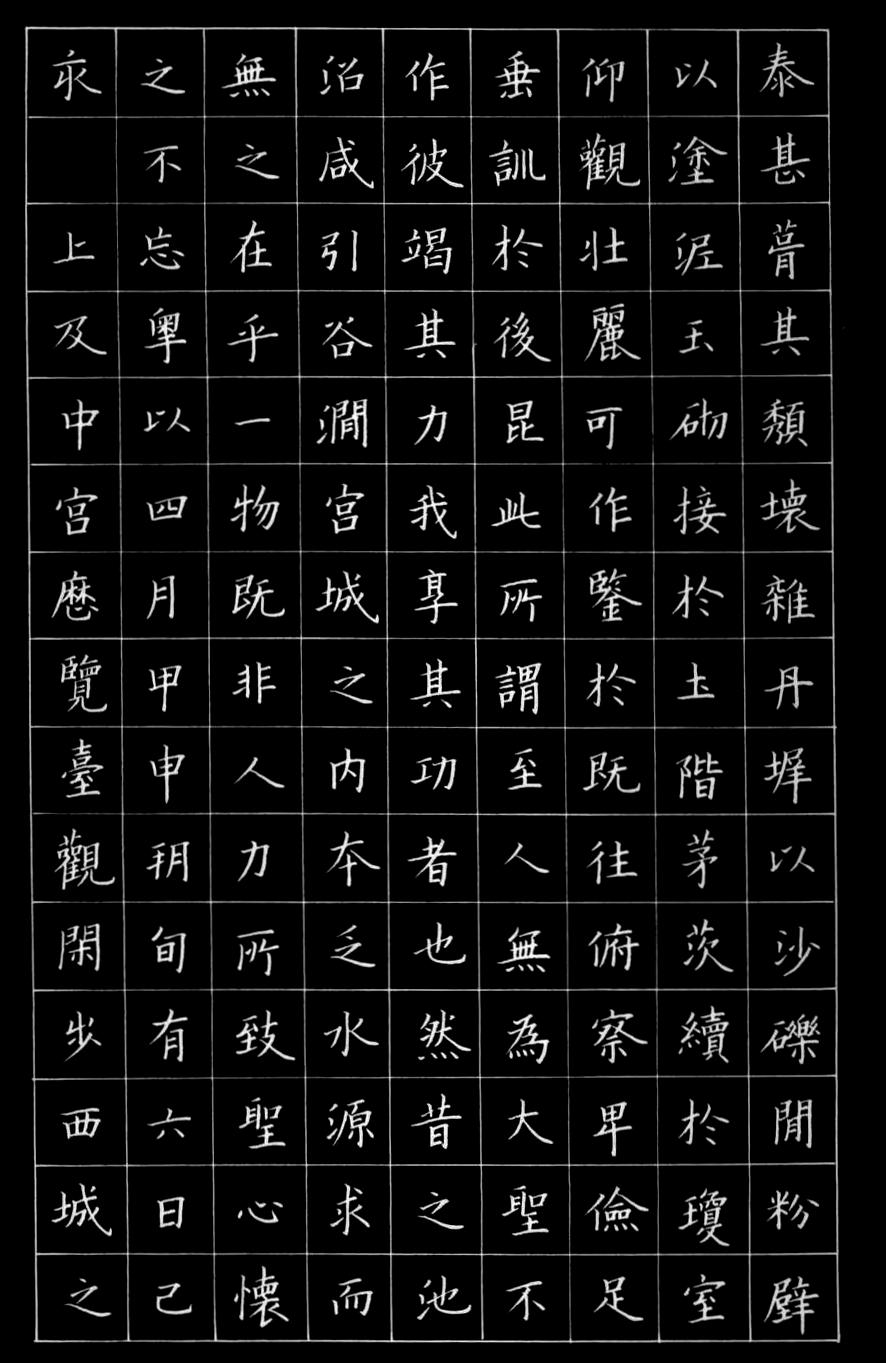 泰甚葺其頽壞雜丹墀以沙礫閒粉壁
以塗泥玉砌接於土階茅茨續於瓊室
仰觀壯麗可作鑒於既往俯察卑儉足
垂訓於後昆此所謂至人無為大聖不
作彼竭其力我享其功者也然昔之池
沼咸引谷澗宮城之内本乏水源求而
無之在乎一物既非人力所致聖心懷
之不忘粵以四月甲申朔旬有六日己
亥 上及中宮歷覽臺觀閑步西城之